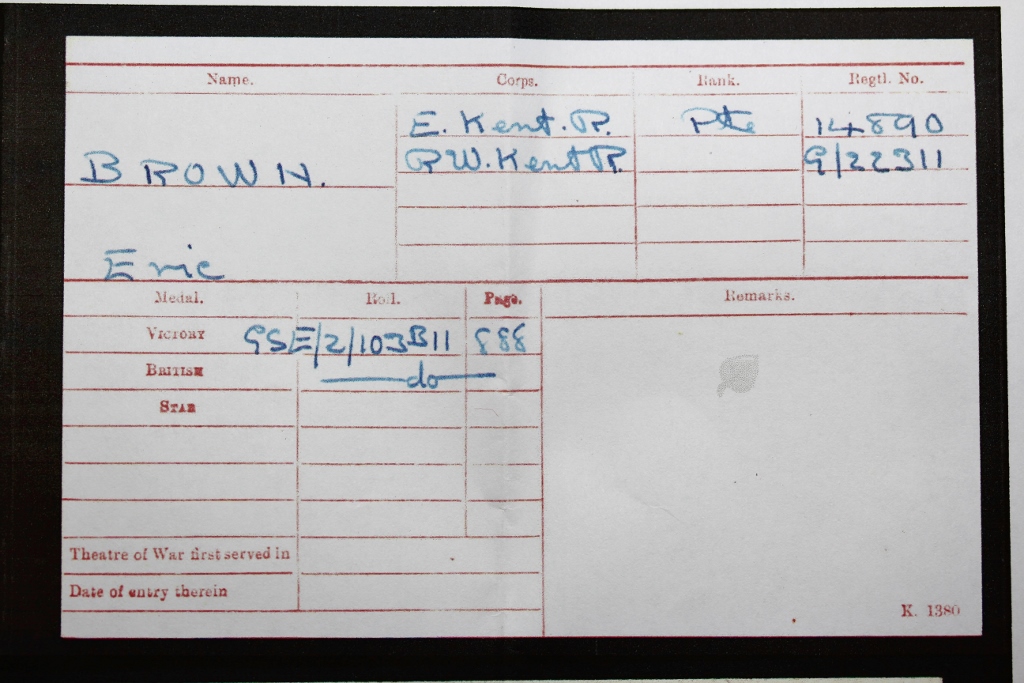 Name. Corps. Rank. Regtl. No.
E. Kent. R. Pte 14890
BROWN. R W. Kent R. G/22311
Eric
Medal. Roll. Page. Remarks.
VICTORY GSE/2/103B11 888
BRITISH —do—
STAR
Theatre of War first served in
Date of entry therein
K. 1380